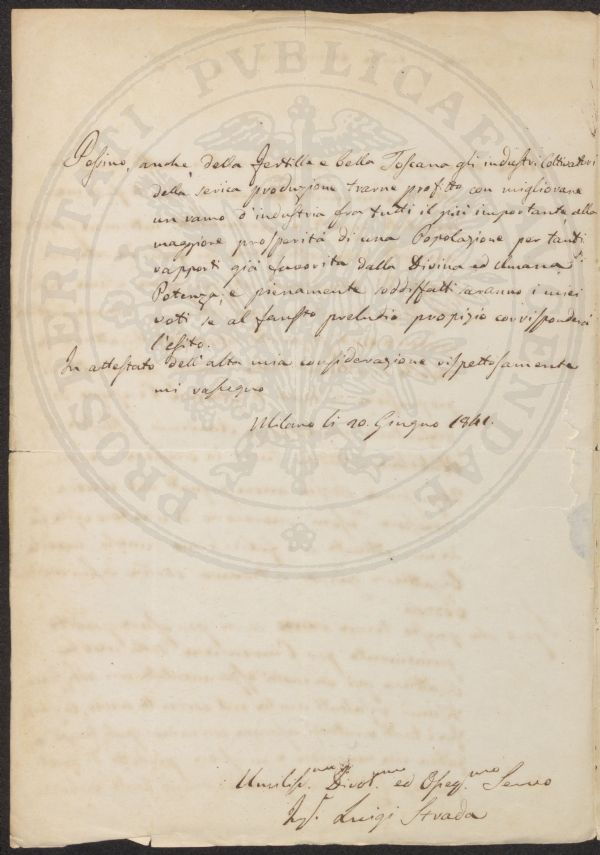 Possino, anche della fertille e bella Toscana gli industri Coltivatori
della serica produzione trarne profitto con migliorare
un ramo d'industria fra tutti il più importante, alla
maggiore prosperità di una Popolazione per tanti
rapporti già favorita dalla Divina ed Umana
Potenza; e pienamente soddisfatti saranno i miei
voti se al fausto preludio propizio corrisponderà
l'esito.
In attestato dell'alta mia considerazione rispettosamente
mi rassegno
Milano li 20. Giugno 1841.
Umilis.mo Divot.mo ed Osseq.mo Servo
Ing.r Luigi Strada
PROSPERITATI PVBLICAE AVGENDAE